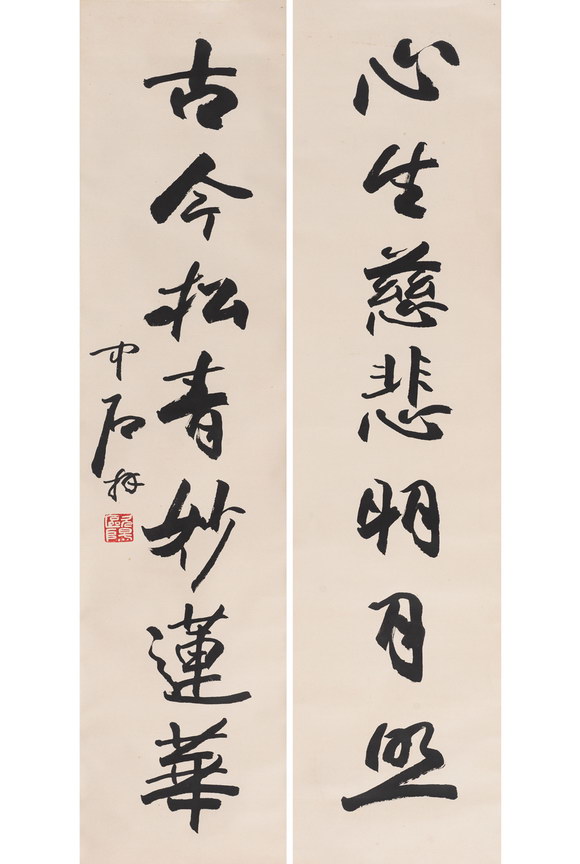 心生慈悲明月照
古今松青妙蓮華
中石拜